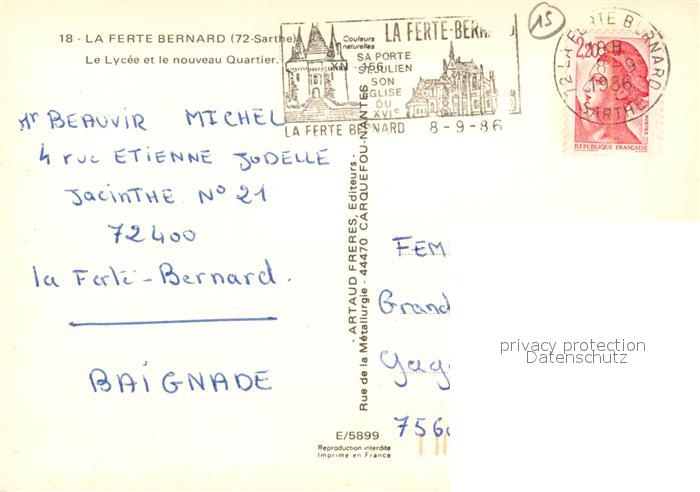 18 - LA FERTE BERNARD (72-Sarthe)
Le Lycée et le nouveau Quartier.
Couleurs
naturelles
LA FERTE-BERN
SA PORTE
ST JULIEN
SON
EGLISE
DU
XVIe
LA FERTE BERNARD 8-9-86
15
72 LA FERTE BERNARD
18 H
8-9
1986
SARTHE
2,20
POSTES
REPUBLIQUE FRANÇAISE
Mr BEAUVIR MICHEL
4 rue ETIENNE JODELLE
JacinTHE N° 21
72400
la Ferté-Bernard.
BAIGNADE
- ARTAUD FRERES, Editeurs -
Rue de la Métallurgie - 44470 CARQUEFOU-NANTES
FEM
Grand
Gag
756
privacy protection
Datenschutz
E/5899
Reproduction interdite
Imprimé en France